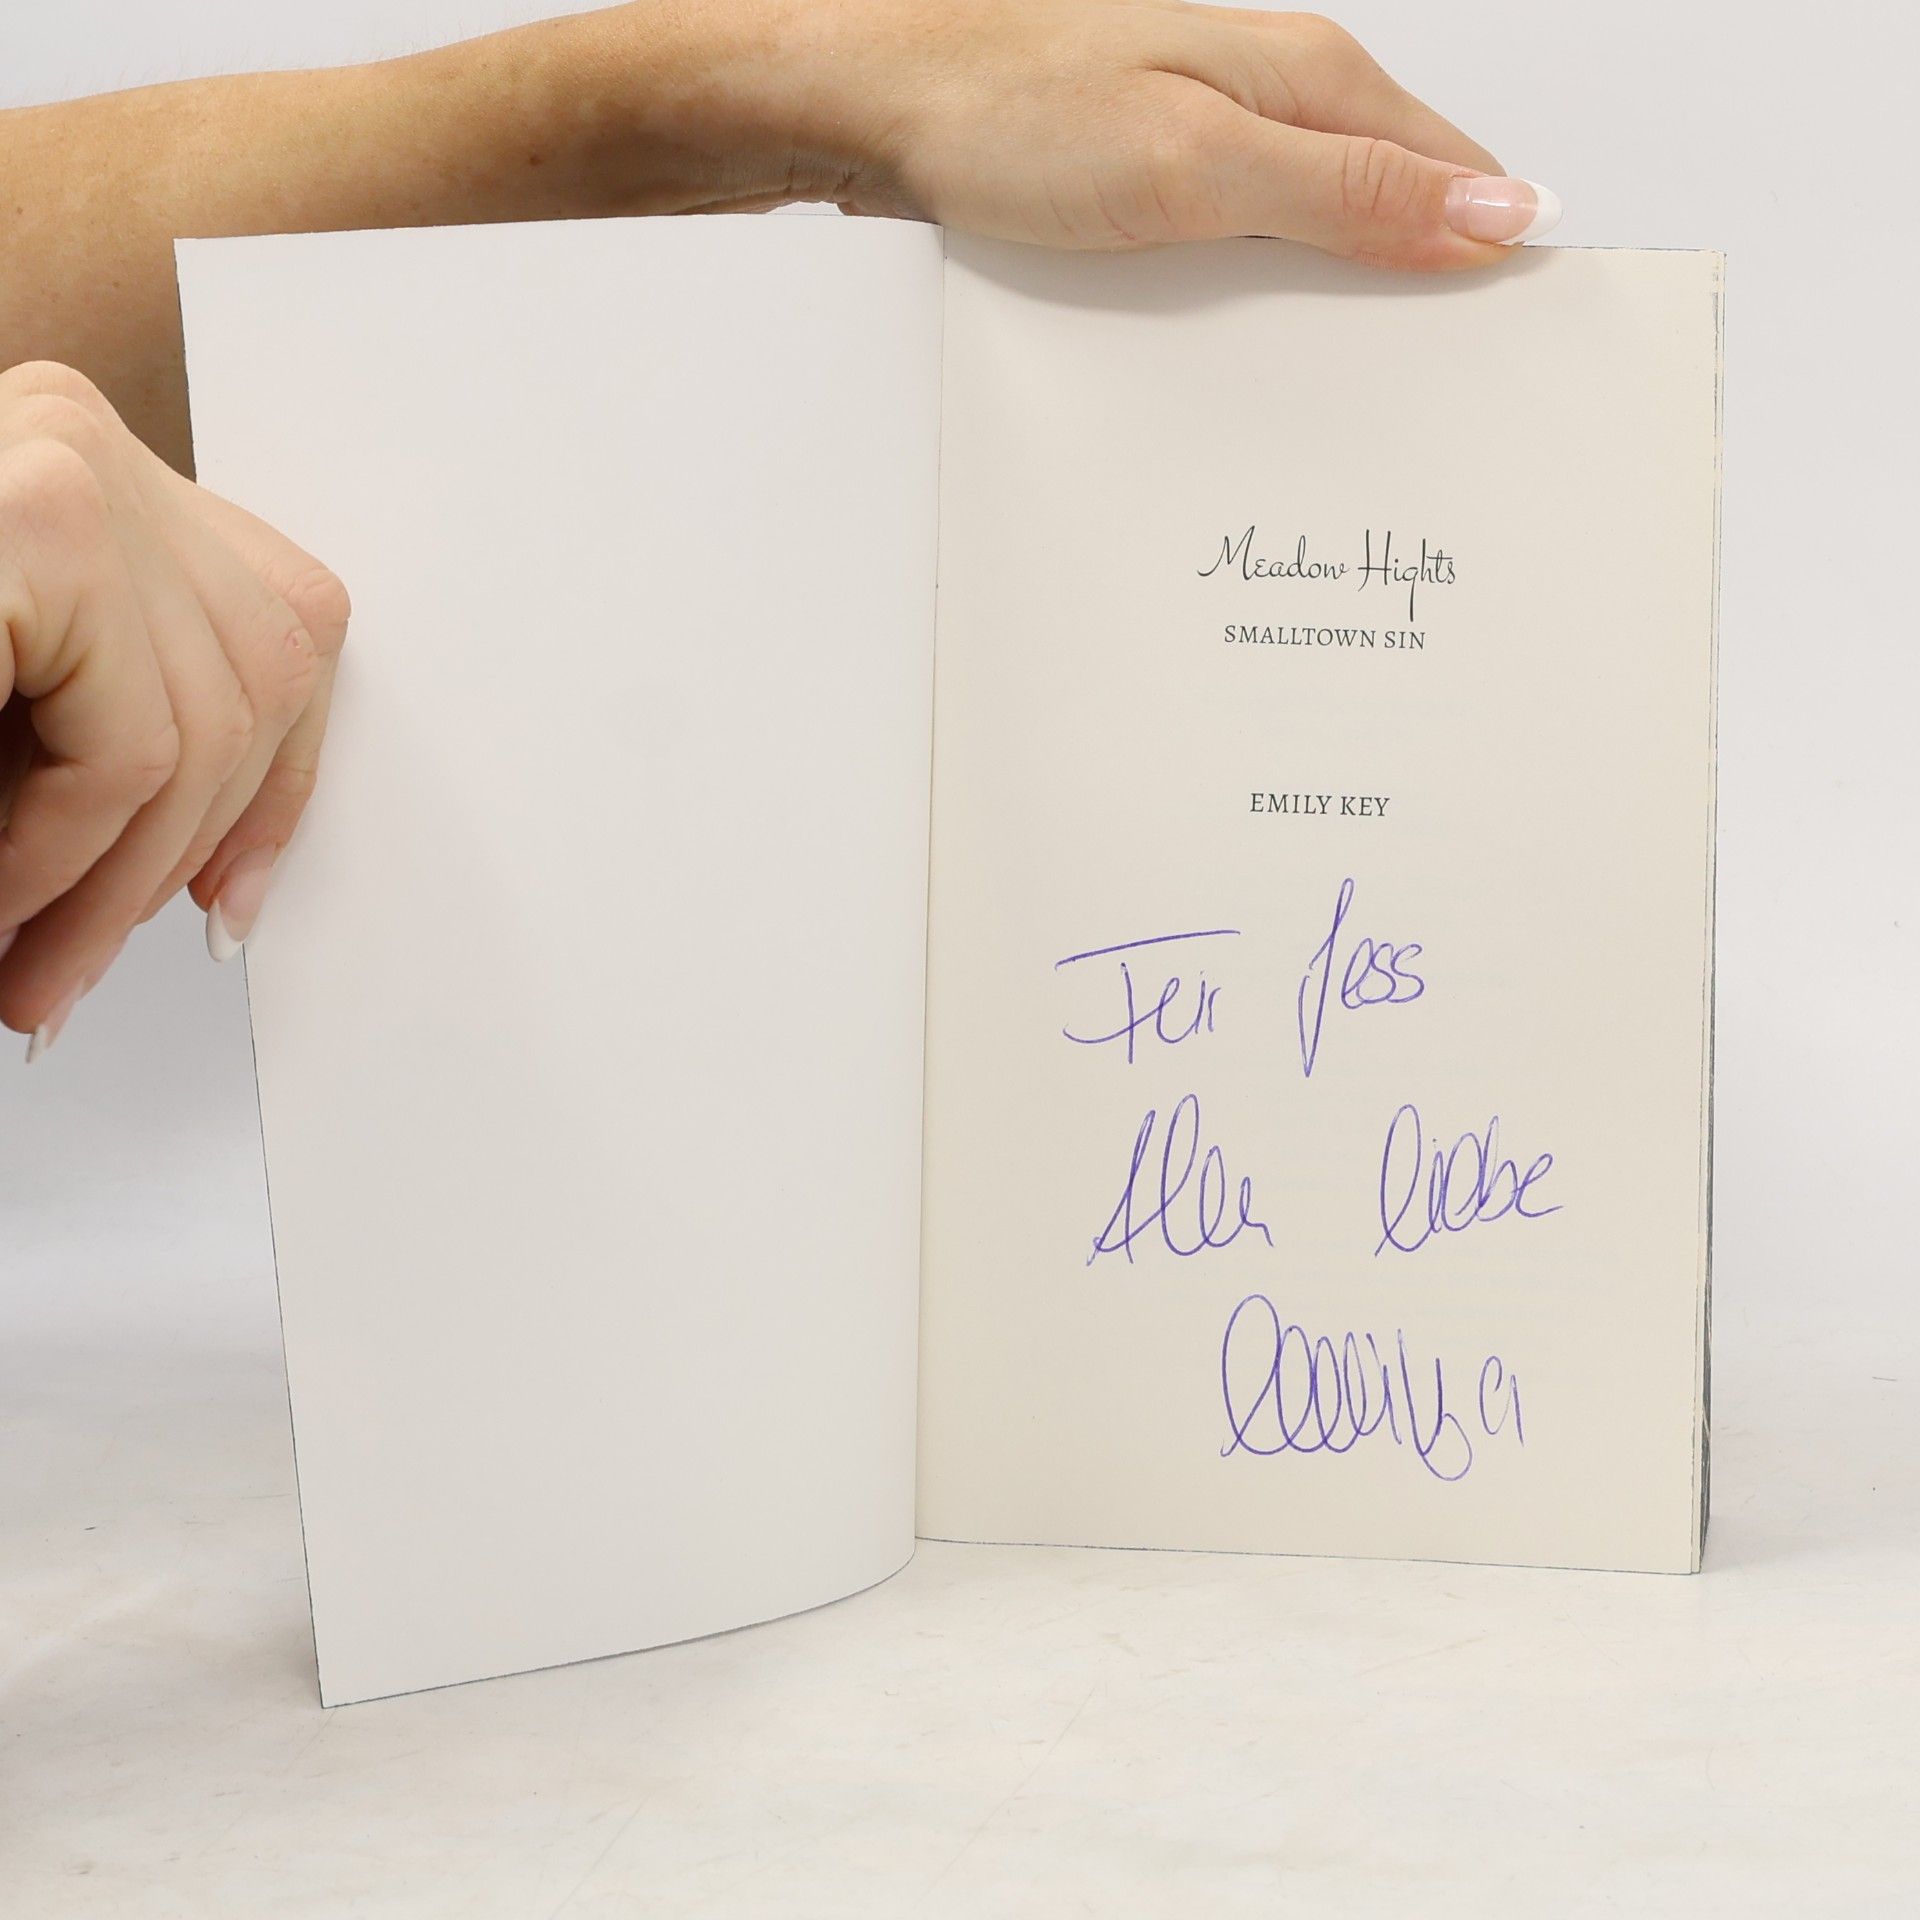 Meadow Hights
SMALLTOWN SIN
EMILY KEY
Für Jess
Alles liebe